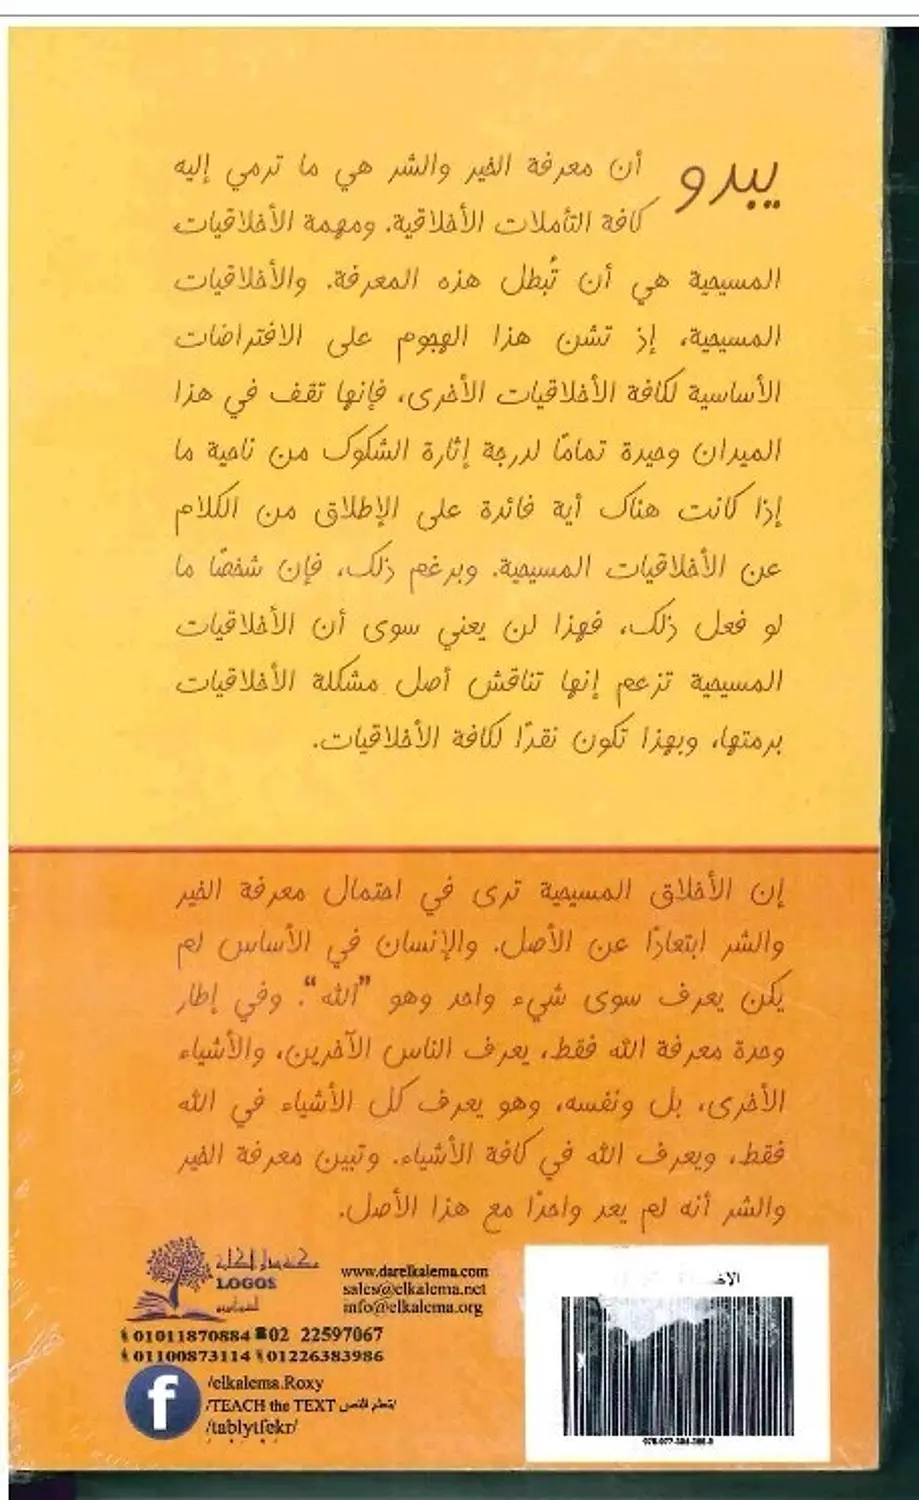 يبدو أن معرفة الخير والشر هي ما ترمي إليه
كافة التأملات الأخلاقية. ومهمة الأخلاقيات
المسيحية هي أن تُبطل هذه المعرفة. والأخلاقيات
المسيحية، إذ تشن هذا الهجوم على الافتراضات
الأساسية لكافة الأخلاقيات الأخرى، فإنها تقف في هذا
الميدان وحيدة تمامًا لدرجة إثارة الشكوك من ناحية ما
إذا كانت هناك أية فائدة على الإطلاق من الكلام
عن الأخلاقيات المسيحية. وبرغم ذلك، فإن شخصًا ما
لو فعل ذلك، فهذا لن يعني سوى أن الأخلاقيات
المسيحية تزعم إنها تناقش أصل مشكلة الأخلاقيات
برمتها، وبهذا تكون نقدًا لكافة الأخلاقيات.
إن الأخلاق المسيحية ترى في احتمال معرفة الخير
والشر ابتعادًا عن الأصل. والإنسان في الأساس لم
يكن يعرف سوى شيء واحد وهو "الله". وفي إطار
وحدة معرفة الله فقط، يعرف الناس الآخرين، والأشياء
الأخرى، بل ونفسه، وهو يعرف كل الأشياء في الله
فقط، ويعرف الله في كافة الأشياء. وتبين معرفة الخير
والشر أنه لم يعد واحدًا مع هذا الأصل.
مكتبة دار الكلمة
LOGOS
www.darelkalema.com
sales@elkalema.net
info@elkalema.org
01011870884 02 22597067
01100873114 01226383986
/elkalema.Roxy
/TEACH the TEXT
/tablytfekr/